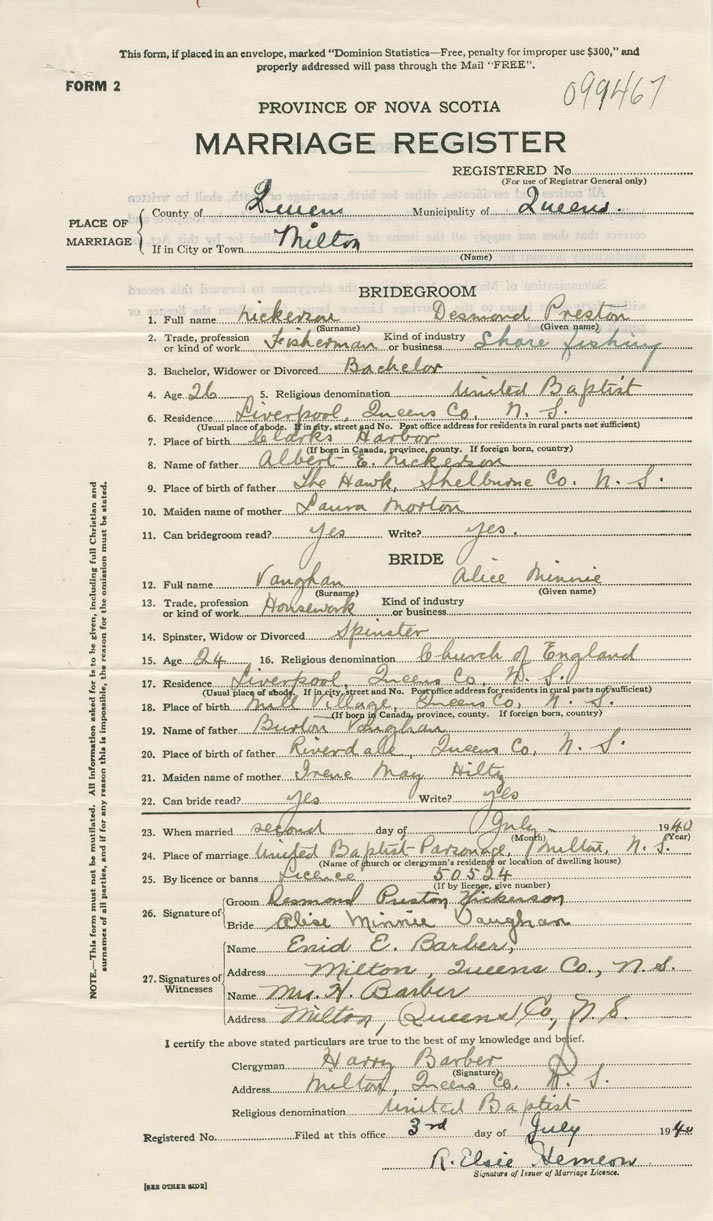 This form, if placed in an envelope, marked "Dominion Statistics—Free, penalty for improper use $300," and
properly addressed will pass through the Mail "FREE".
FORM 2
099467
PROVINCE OF NOVA SCOTIA
MARRIAGE REGISTER
REGISTERED No.
(For use of Registrar General only)
PLACE OF MARRIAGE
County of Queens Municipality of Queens.
If in City or Town Milton
(Name)
BRIDEGROOM
1. Full name Nickerson Desmond Preston
(Surname) (Given name)
2. Trade, profession or kind of work Fisherman Kind of industry or business Shore fishing
3. Bachelor, Widower or Divorced Bachelor
4. Age 26 5. Religious denomination United Baptist
6. Residence Liverpool, Queens Co. N. S.
(Usual place of abode. If in city, street and No. Post office address for residents in rural parts not sufficient)
7. Place of birth Clarks Harbor
(If born in Canada, province, county. If foreign born, country)
8. Name of father Albert E. Nickerson
9. Place of birth of father The Hawk, Shelburne Co. N. S.
10. Maiden name of mother Laura Morton
11. Can bridegroom read? yes Write? yes.
BRIDE
12. Full name Vaughan Alice Minnie
(Surname) (Given name)
13. Trade, profession or kind of work Housework Kind of industry or business
14. Spinster, Widow or Divorced Spinster
15. Age 24 16. Religious denomination Church of England
17. Residence Liverpool, Queens Co. N. S.
(Usual place of abode. If in city, street and No. Post office address for residents in rural parts not sufficient)
18. Place of birth Mill Village, Queens Co. N. S.
(If born in Canada, province, county. If foreign born, country)
19. Name of father Burton Vaughan
20. Place of birth of father Riverdale, Queens Co, N. S.
21. Maiden name of mother Irene May Hiltz
22. Can bride read? yes Write? yes
23. When married second day of July 1940
(Month) (Year)
24. Place of marriage United Baptist Parsonage, Milton, N. S.
(Name of church or clergyman's residence or location of dwelling house)
25. By licence or banns Licence 50524
(If by licence, give number)
26. Signature of
Groom Desmond Preston Nickerson
Bride Alice Minnie Vaughan
27. Signatures of Witnesses
Name Enid E. Barber,
Address Milton, Queens Co., N. S.
Name Mrs. H. Barber
Address Milton, Queens Co, N. S.
I certify the above stated particulars are true to the best of my knowledge and belief.
Clergyman Harry Barber
(Signature)
Address Milton, Queens Co. N. S.
Religious denomination United Baptist
Registered No. Filed at this office 3rd day of July 1940
R. Elsie Hemeon
Signature of Issuer of Marriage Licence.
[SEE OTHER SIDE]
NOTE.—This form must not be mutilated. All information asked for is to be given, including full Christian and
surnames of all parties, and if for any reason this is impossible, the reason for the omission must be stated.